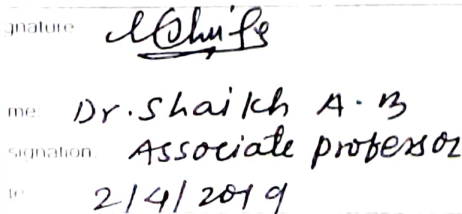 gnature
me Dr. Shaikh A. B
signation Associate professor
te 2/4/2019